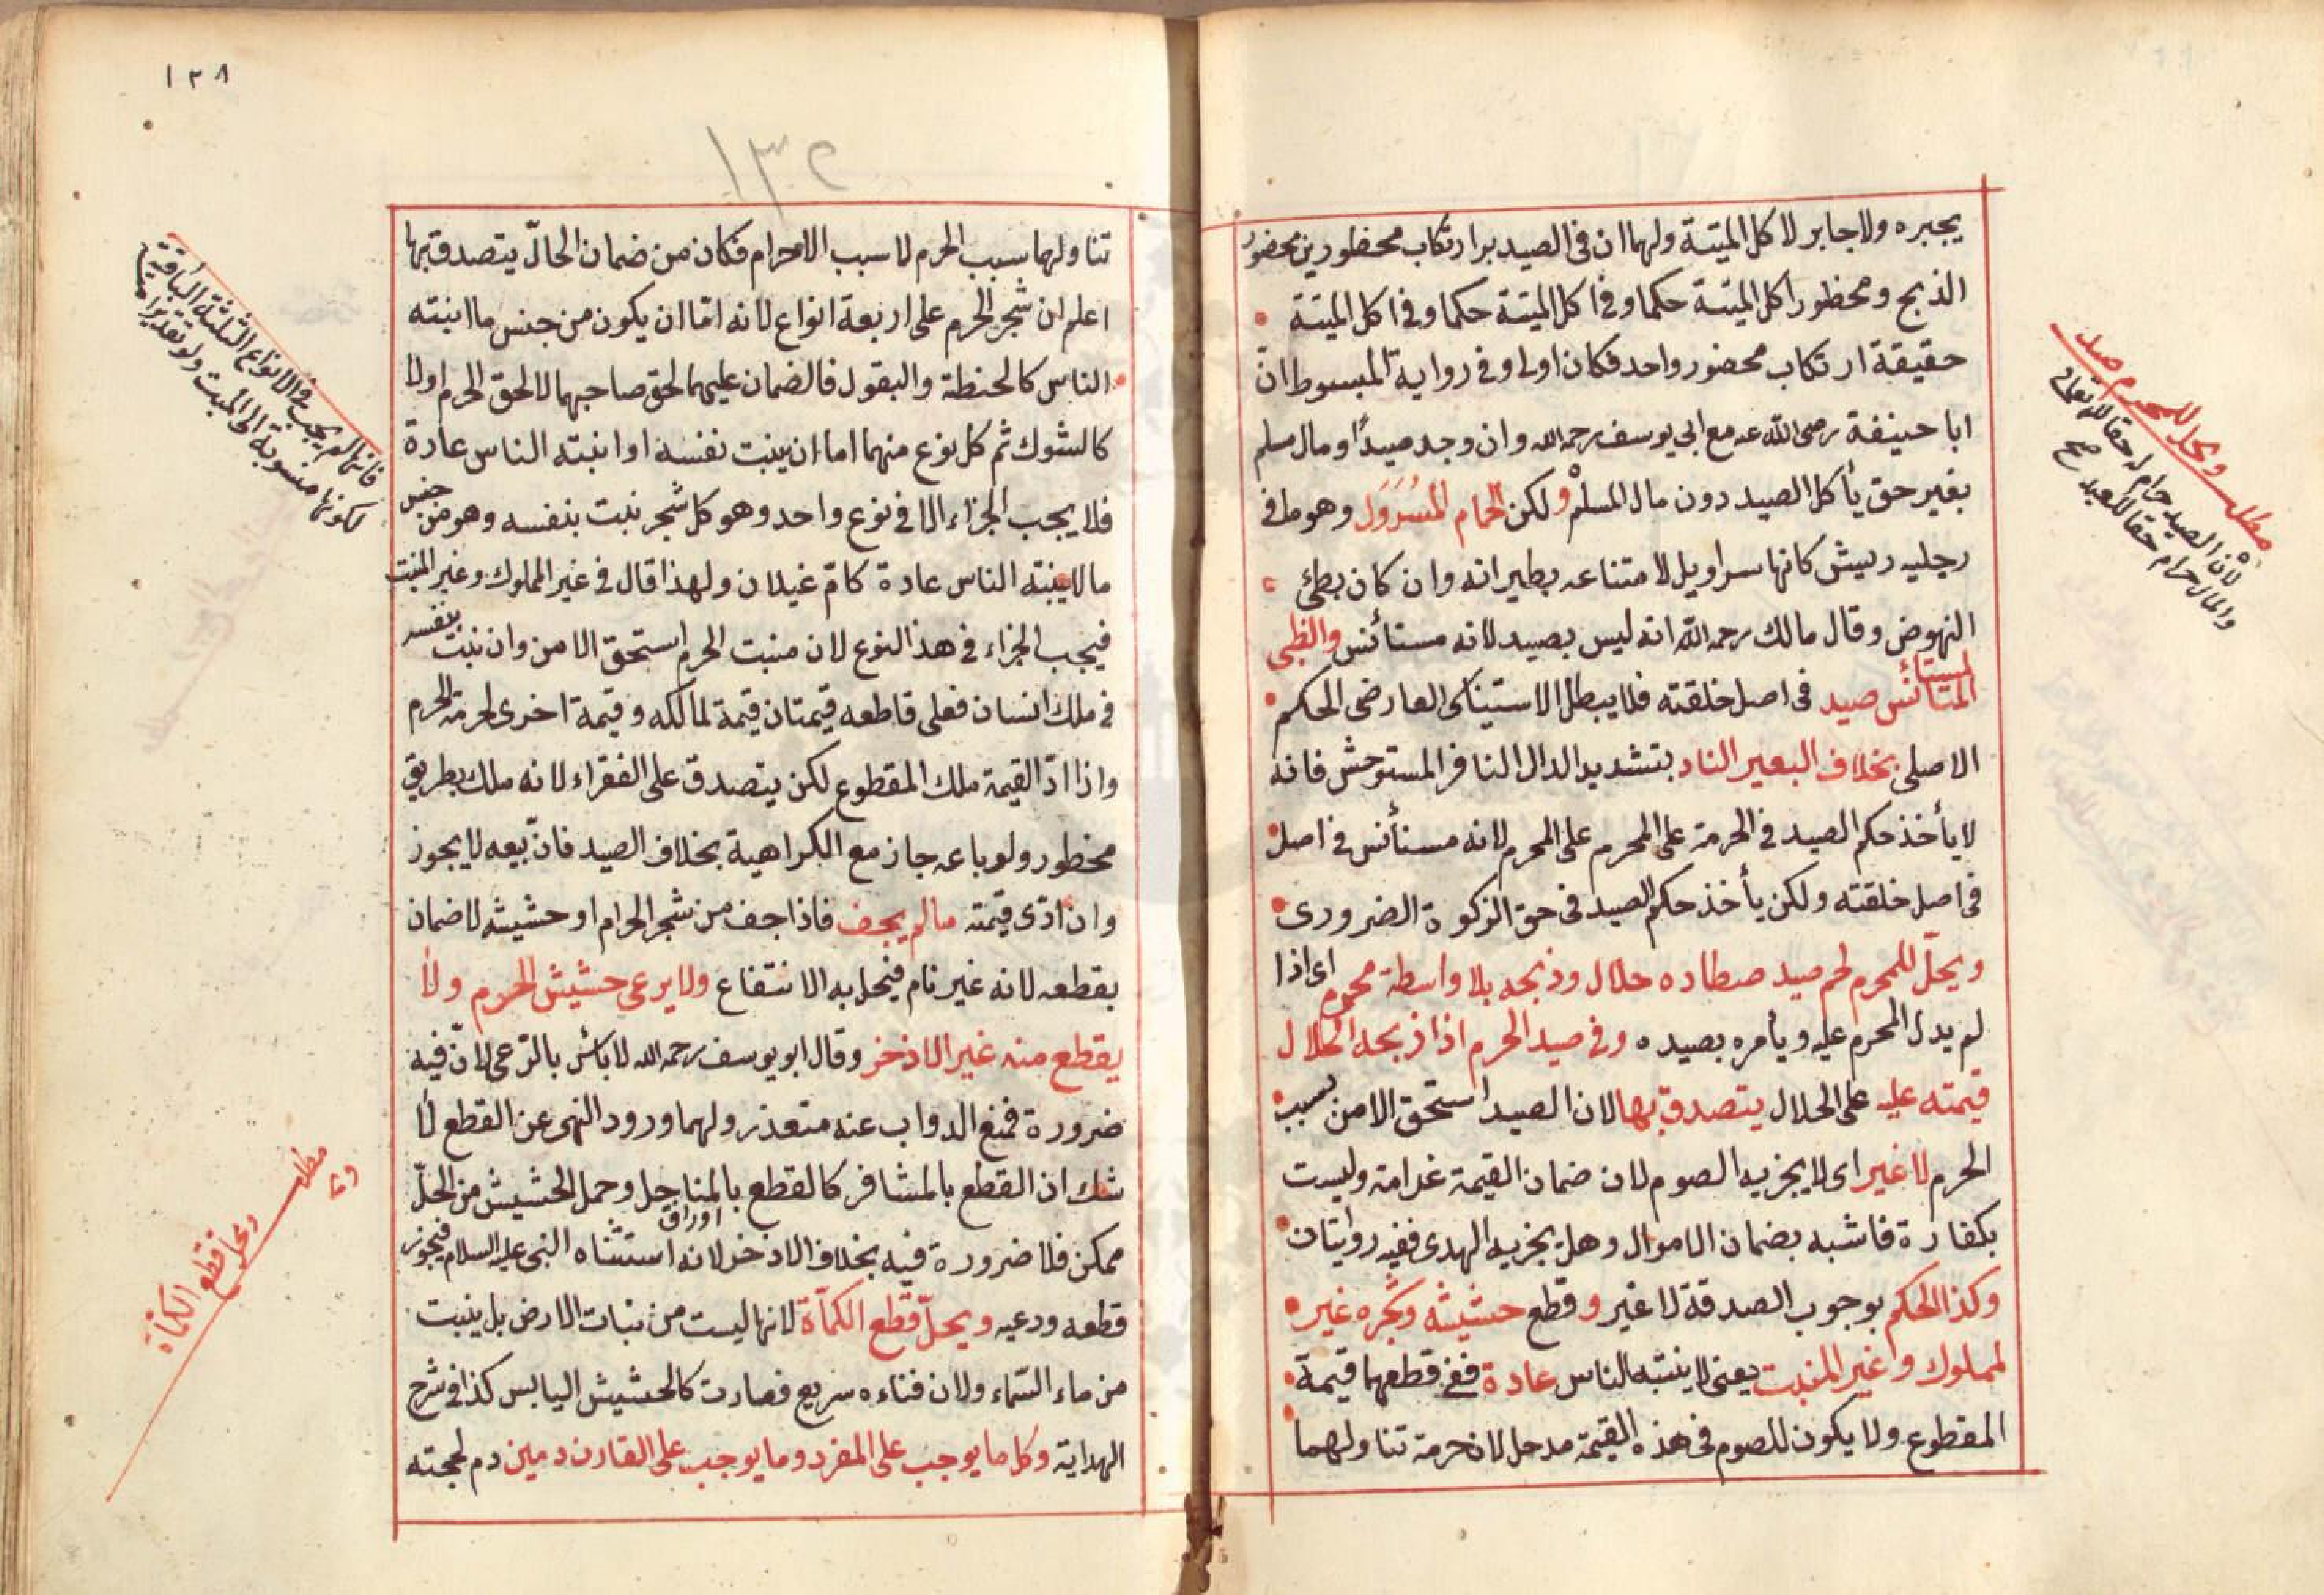 يجبره ولا جابر لا كل الميتة ولهما ان في الصيد برا ارتكاب محظورين محضور
الذبح ومحظور اكل الميتة حكما وفي اكل الميتة حكما وفي اكل الميتة
حقيقة ارتكاب محضور واحد فكان اولى وفي رواية المبسوط انّ
ابا حنيفة رضى الله عنه مع ابي يوسف رحمه الله وان وجد صيدًا ومال مسلم
بغير حق يأكل الصيد دون مال المسلم ولكن الحمام المُسَرْوَل وهو ما في
رجليه ريش كانها سراويل لامتناعه بطيرانه وان كان بطئ
النهوض وقال مالك رحمه الله انه ليس بصيد لانه مستأنس والظبى
لمستأ
المتانس صيد في اصل خلقته فلا يبطل الاستيناس العارضى الحكم
الاصلى بخلاف البعير الناد بتشديد الدال النافر المستوحش فانه
لا يأخذ حكم الصيد في الحرمة على المحرم على المحرم لانه مستأنس في اصل
في اصل خلقته ولكن يأخذ حكم الصيد في حق الزكوة الضرورى
ويحلّ للمحرم لحم صيد صطاده حلال وذبحه بلا واسطة محرم اى اذا
لم يدل المحرم عليه ويأمره بصيده وفي صيد الحرم اذا ذبحه الحلال
قيمته عليه على الحلال يتصدق بها لان الصيد استحق الامن بسبب
الحرم لا غير اى لا يجزيه الصوم لان ضمان القيمة غرامة وليست
بكفارة فاشبه بضمان الاموال وهل يجزيه الهدى ففيه روايتان
وكذا الحكم بوجوب الصدقة لا غير وقطع حشيشه وشجره غير
لمملوك وغير المنبت يعنى لا ينبته الناس عادة ففي قطعهما قيمة
المقطوع ولا يكون للصوم في هذه القيمة مدخل لان حرمة تناولهما
مطلب ويحل للمحرم صيد
لان الصيد حرام حقا لله تعالى
والمال حرام حقا للعبد صح
١٣٨
١٣٥
تناولهما بسبب الحرم لا سبب الاحرام فكان من ضمان الحالّ يتصدق بها
اعلم ان شجر الحرم على اربعة انواع لانه امّا ان يكون من جنس ما انبته
الناس كالحنطة والبقول فالضمان عليهما لحق صاحبهما لا لحق الحرم اولا
كالشوك ثم كل نوع منهما اما ان ينبت نفسه او انبته الناس عادة
فلا يجب الجزاء الا في نوع واحد وهو كل شجر نبت بنفسه وهو من جنس
ما لا ينبته الناس عادة كامّ غيلان ولهذا قال في غير المملوك وغير المنبت
فيجب الجزاء في هذا النوع لان منبت الحرم استحق الامن وان نبت بنفسه
في ملك انسان فعلى قاطعه قيمتان قيمة لمالكه وقيمة اخرى لحرمة الحرم
واذا ادّ القيمة ملك المقطوع لكن يتصدق على الفقراء لانه ملك بطريق
محظور ولو باعه جاز مع الكراهية بخلاف الصيد فانّ بيعه لا يجوز
وان ادّى قيمته ما لم يجف فاذا جف من شجر الحرام او حشيشه لا ضمان
بقطعه لانه غير نام فيحل به الانتفاع ولا يرعى حشيش الحرم ولا
يقطع منه غير الاذخر وقال ابو يوسف رحمه الله لا بأس بالرّعى لانّ فيه
ضرورة فمنع الدواب عنه متعذر ولهما ورود النهى عن القطع لا
شك ان القطع بالمشافر كالقطع بالمناجل وحمل الحشيش من الحلّ
ممكن فلا ضرورة فيه بخلاف الاذخر لانه استثناه النبى عليه السلام فيجوز
اوراق
قطعه ورعيه ويحلّ قطع الكمأة لانها ليست من نبات الارض بل ينبت
من ماء السّماء ولان فناءه سريع فصارت كالحشيش اليابس كذا في شرح
الهداية وكل ما يوجب على المفرد وما يوجب على القارن دمين دم لحجته
فانها لم يجب في الانواع الثلثة الباقية
لكونها منسوبة الى المنبت ولو تقديرا
مطلب
ويحل قطع الكمأة